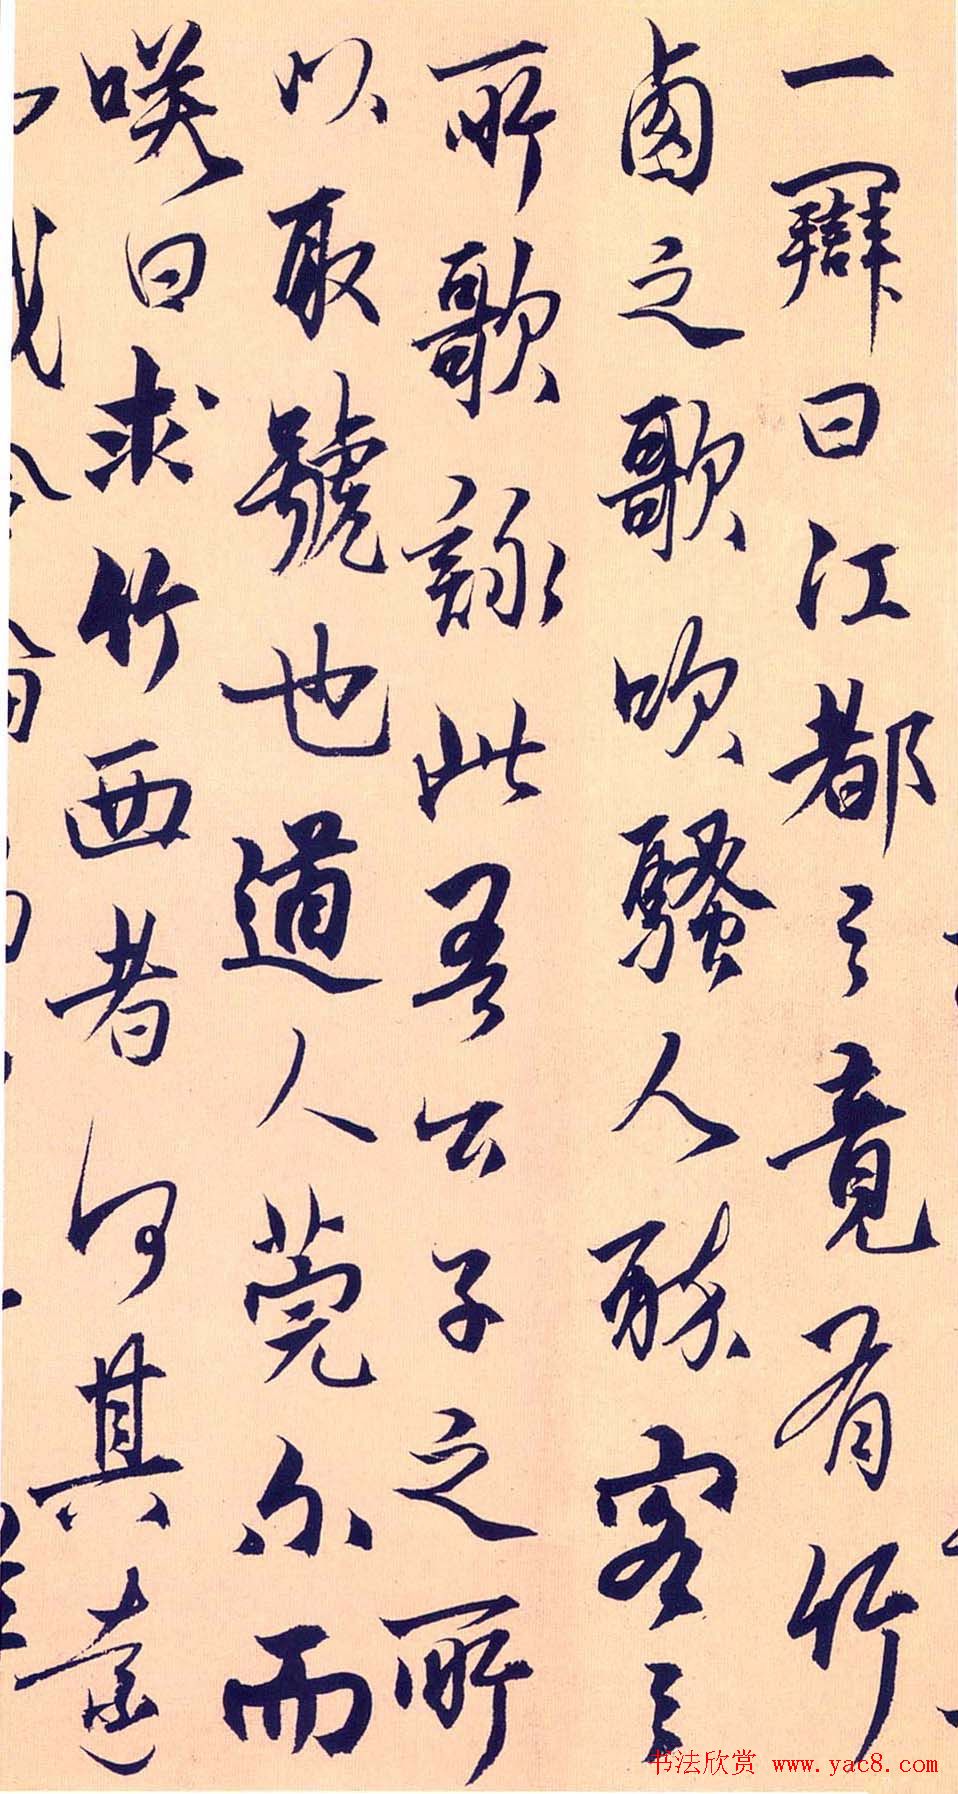 一辯曰江都之竟有竹
西之歌吹騷人醉客之
所歌詠此吾公子之所
以取號也道人莞尔而
咲曰求竹西者何其遠
书法欣赏 www.yac8.com